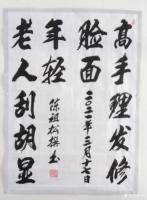 高手理发修
脸面
年轻
老人刮胡显
二〇二一年三月十七日
陈祖松撰书